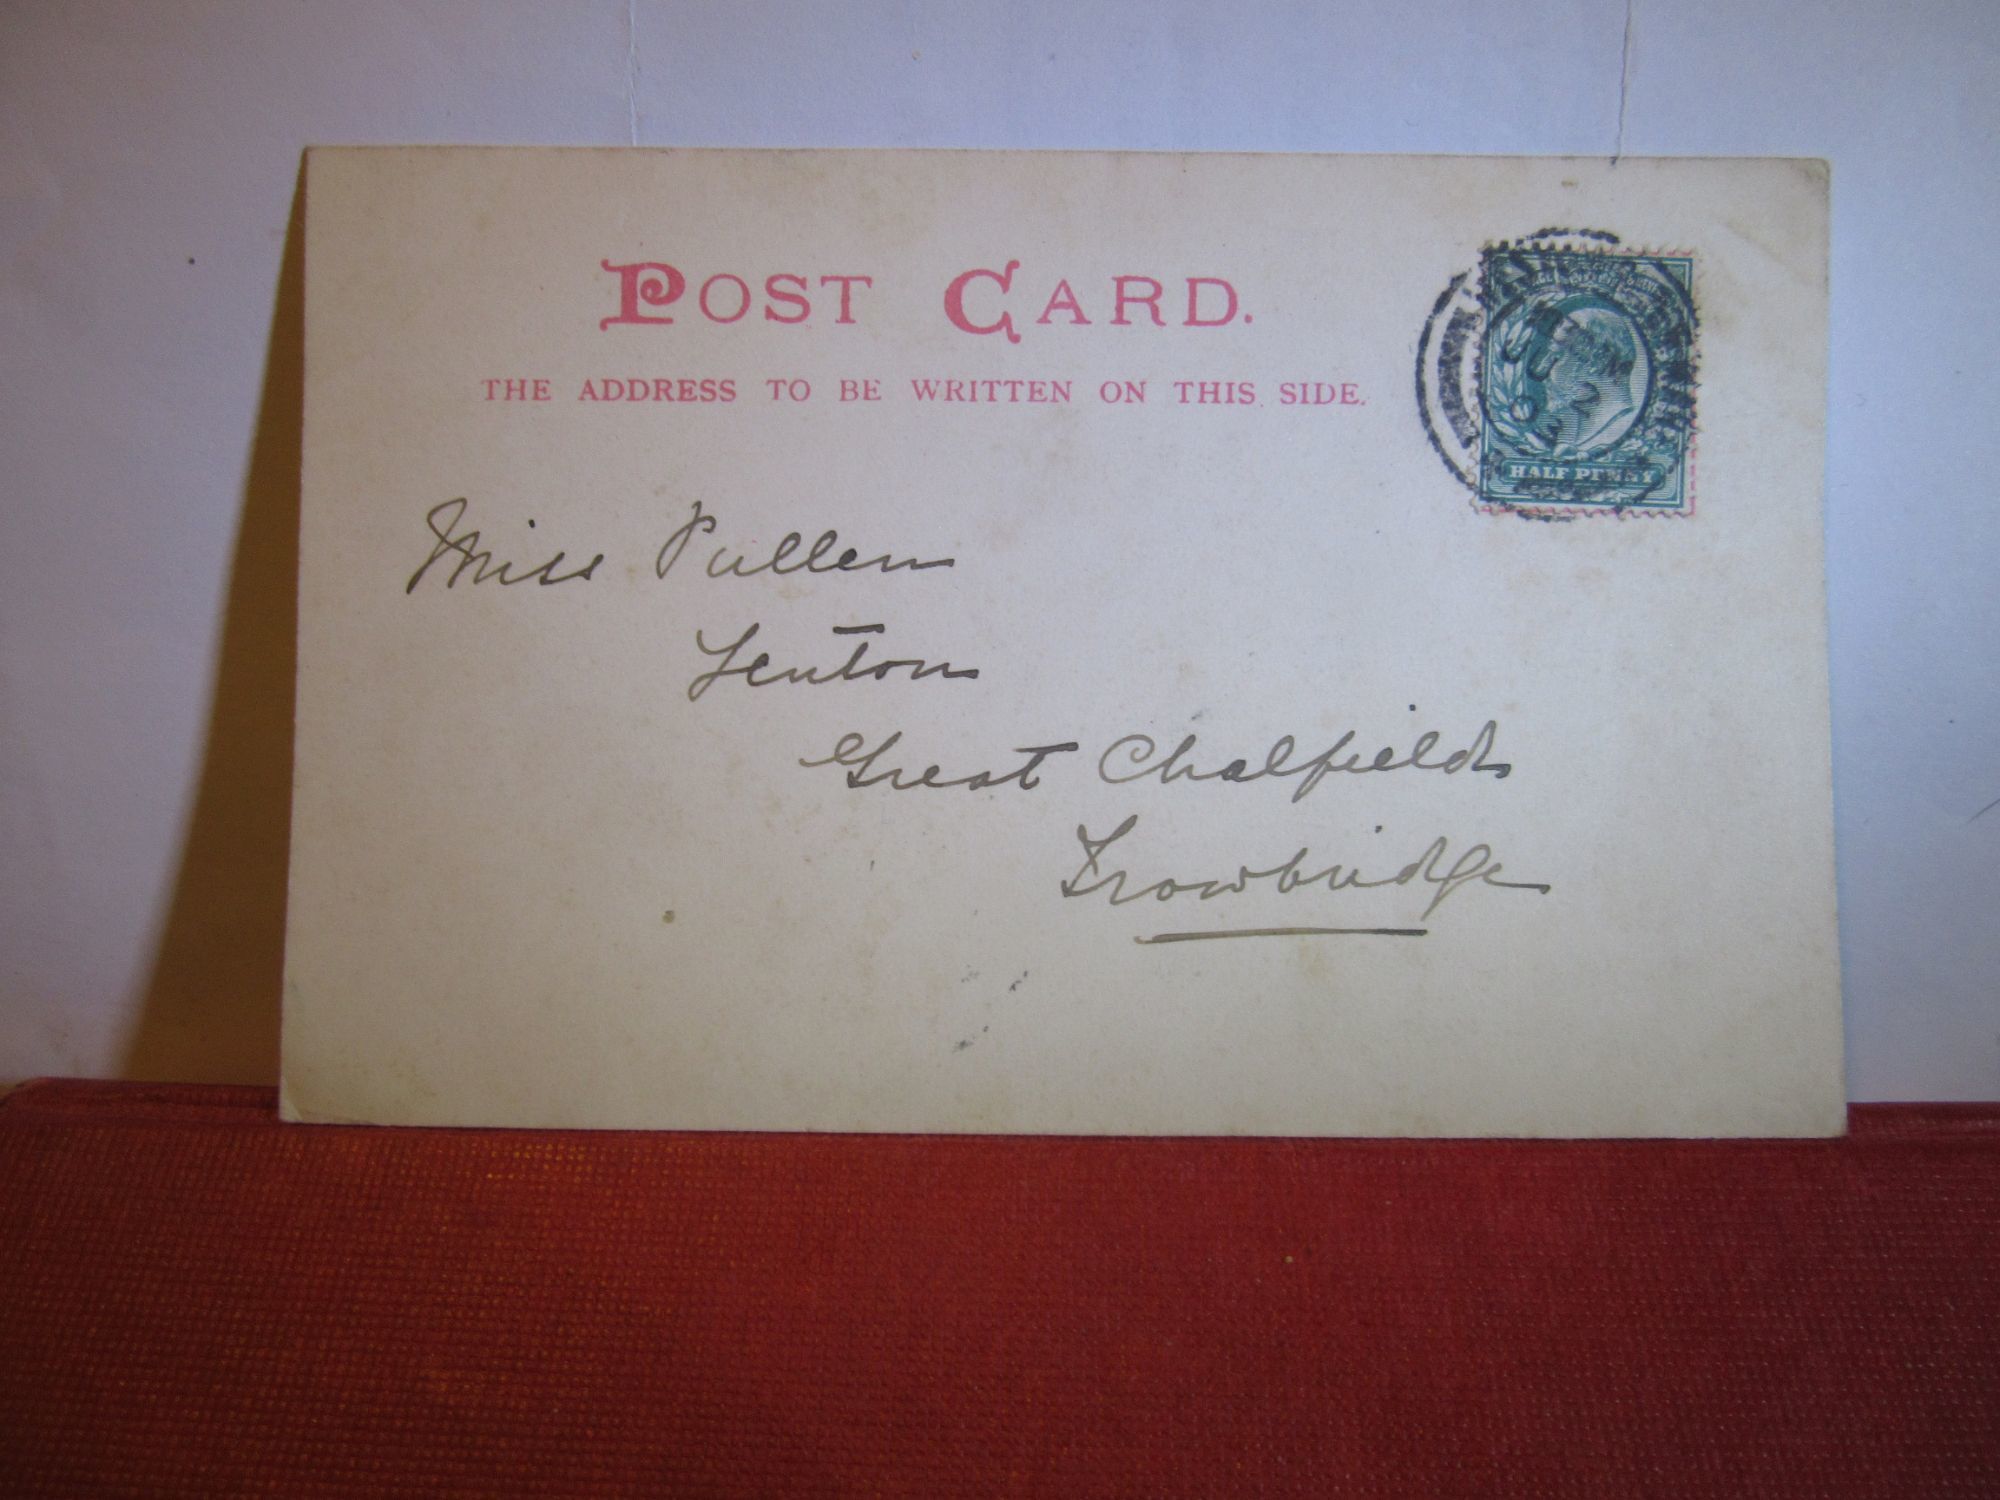 POST CARD.
THE ADDRESS TO BE WRITTEN ON THIS SIDE.
HALF PENNY
Miss Pullen
Lenton
Great Chalfield
Trowbridge